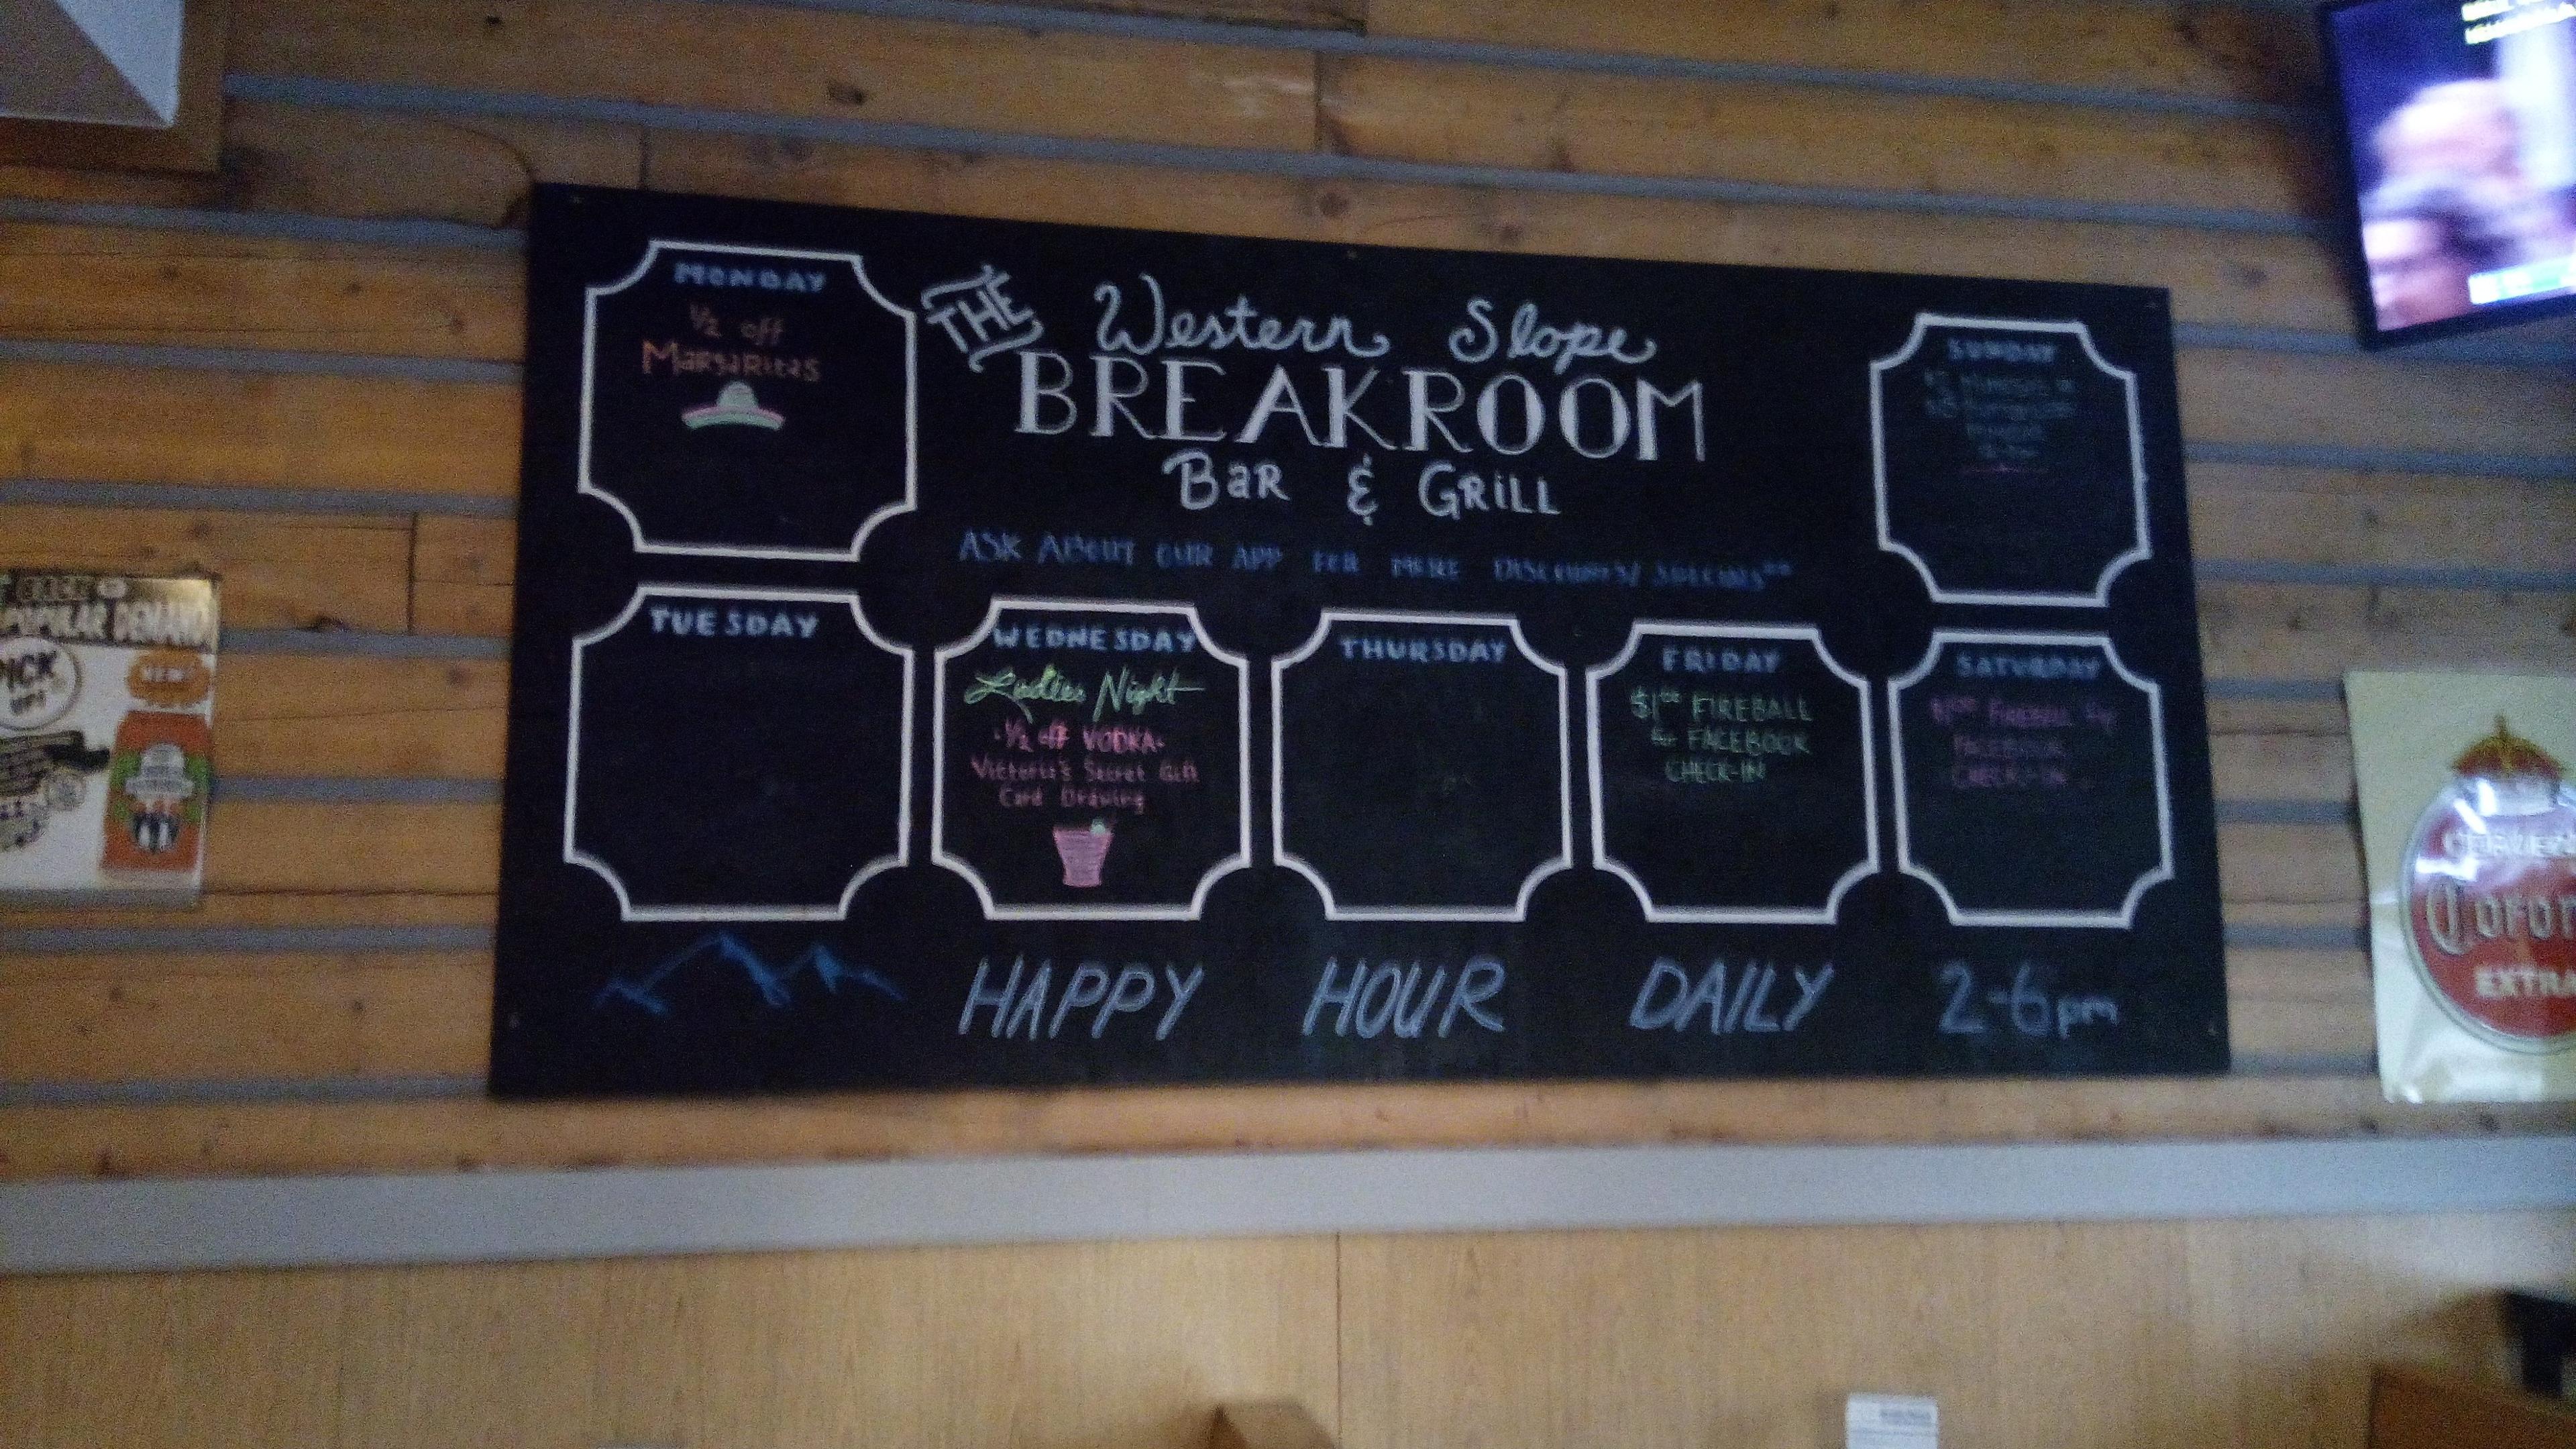 MONDAY
1/2 off
Margaritas
THE
Western Slope
BREAKROOM
Bar & Grill
ASK ABOUT OUR APP FOR MORE DISCOUNTS/ SPECIALS**
SUNDAY
TUESDAY
WEDNESDAY
Ladies Night
·1/2 off VODKA·
Victoria's Secret Gift
Card Drawing
THURSDAY
FRIDAY
$1⁰⁰ FIREBALL
for FACEBOOK
CHECK-IN
SATURDAY
$1⁰⁰ FIREBALL for
FACEBOOK
CHECK-IN
HAPPY HOUR DAILY 2-6pm
POPULAR DEMAND
PICK
UP!
NEW!
EXTRA